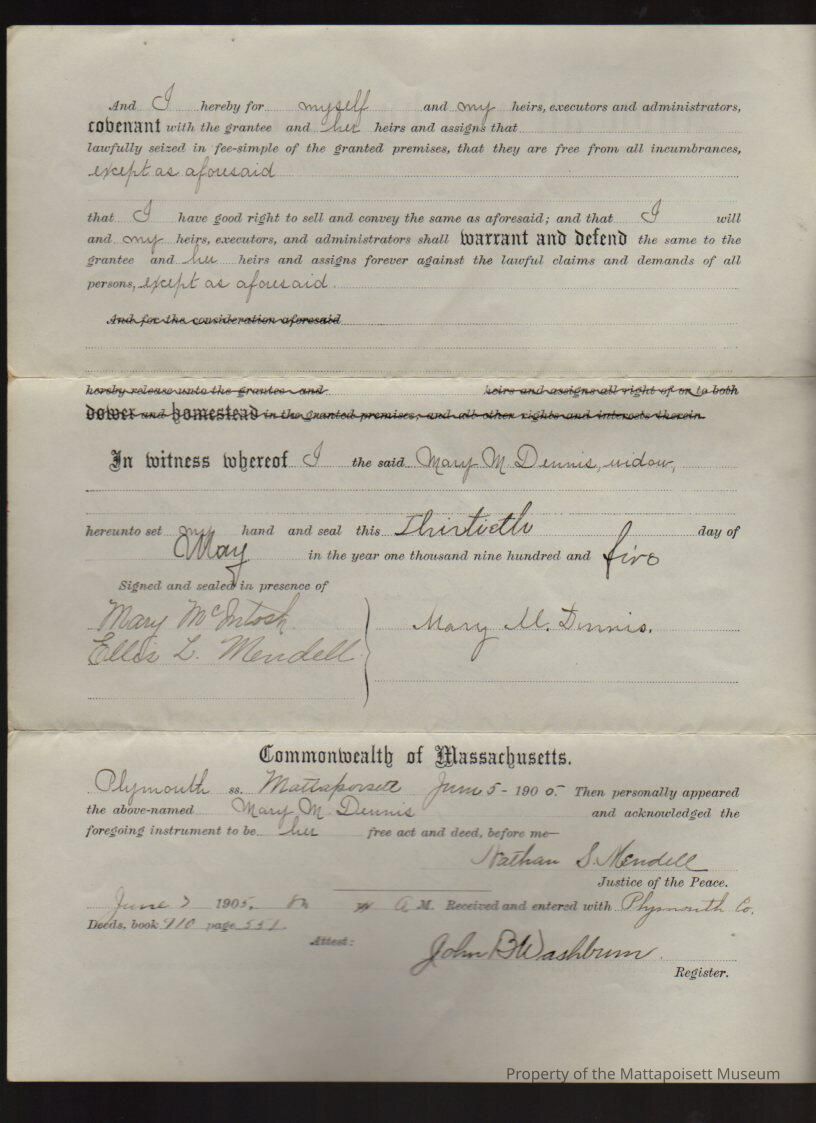 And I hereby for myself and my heirs, executors and administrators,
covenant with the grantee and her heirs and assigns that
lawfully seized in fee-simple of the granted premises, that they are free from all incumbrances,
except as aforesaid
that I have good right to sell and convey the same as aforesaid; and that I will
and my heirs, executors, and administrators shall warrant and defend the same to the
grantee and her heirs and assigns forever against the lawful claims and demands of all
persons, except as aforesaid.
And for the consideration aforesaid
hereby release unto the grantee and heirs and assigns all right of or to both
dower and homestead in the granted premises, and all other rights and interests therein.
In witness whereof I the said Mary M. Dennis, widow,
hereunto set my hand and seal this Thirtieth day of
May in the year one thousand nine hundred and five
Signed and sealed in presence of
Mary McIntosh
Ellis L. Mendell
Mary M. Dennis.
Commonwealth of Massachusetts.
Plymouth ss. Mattapoisett June 5 - 1905 Then personally appeared
the above-named Mary M. Dennis and acknowledged the
foregoing instrument to be her free act and deed, before me—
Nathan S. Mendell
Justice of the Peace.
June 1905, A M. Received and entered with Plymouth Co.
Deeds, book 910 page 551.
Attest:
John B Washburn
Register.
Property of the Mattapoisett Museum